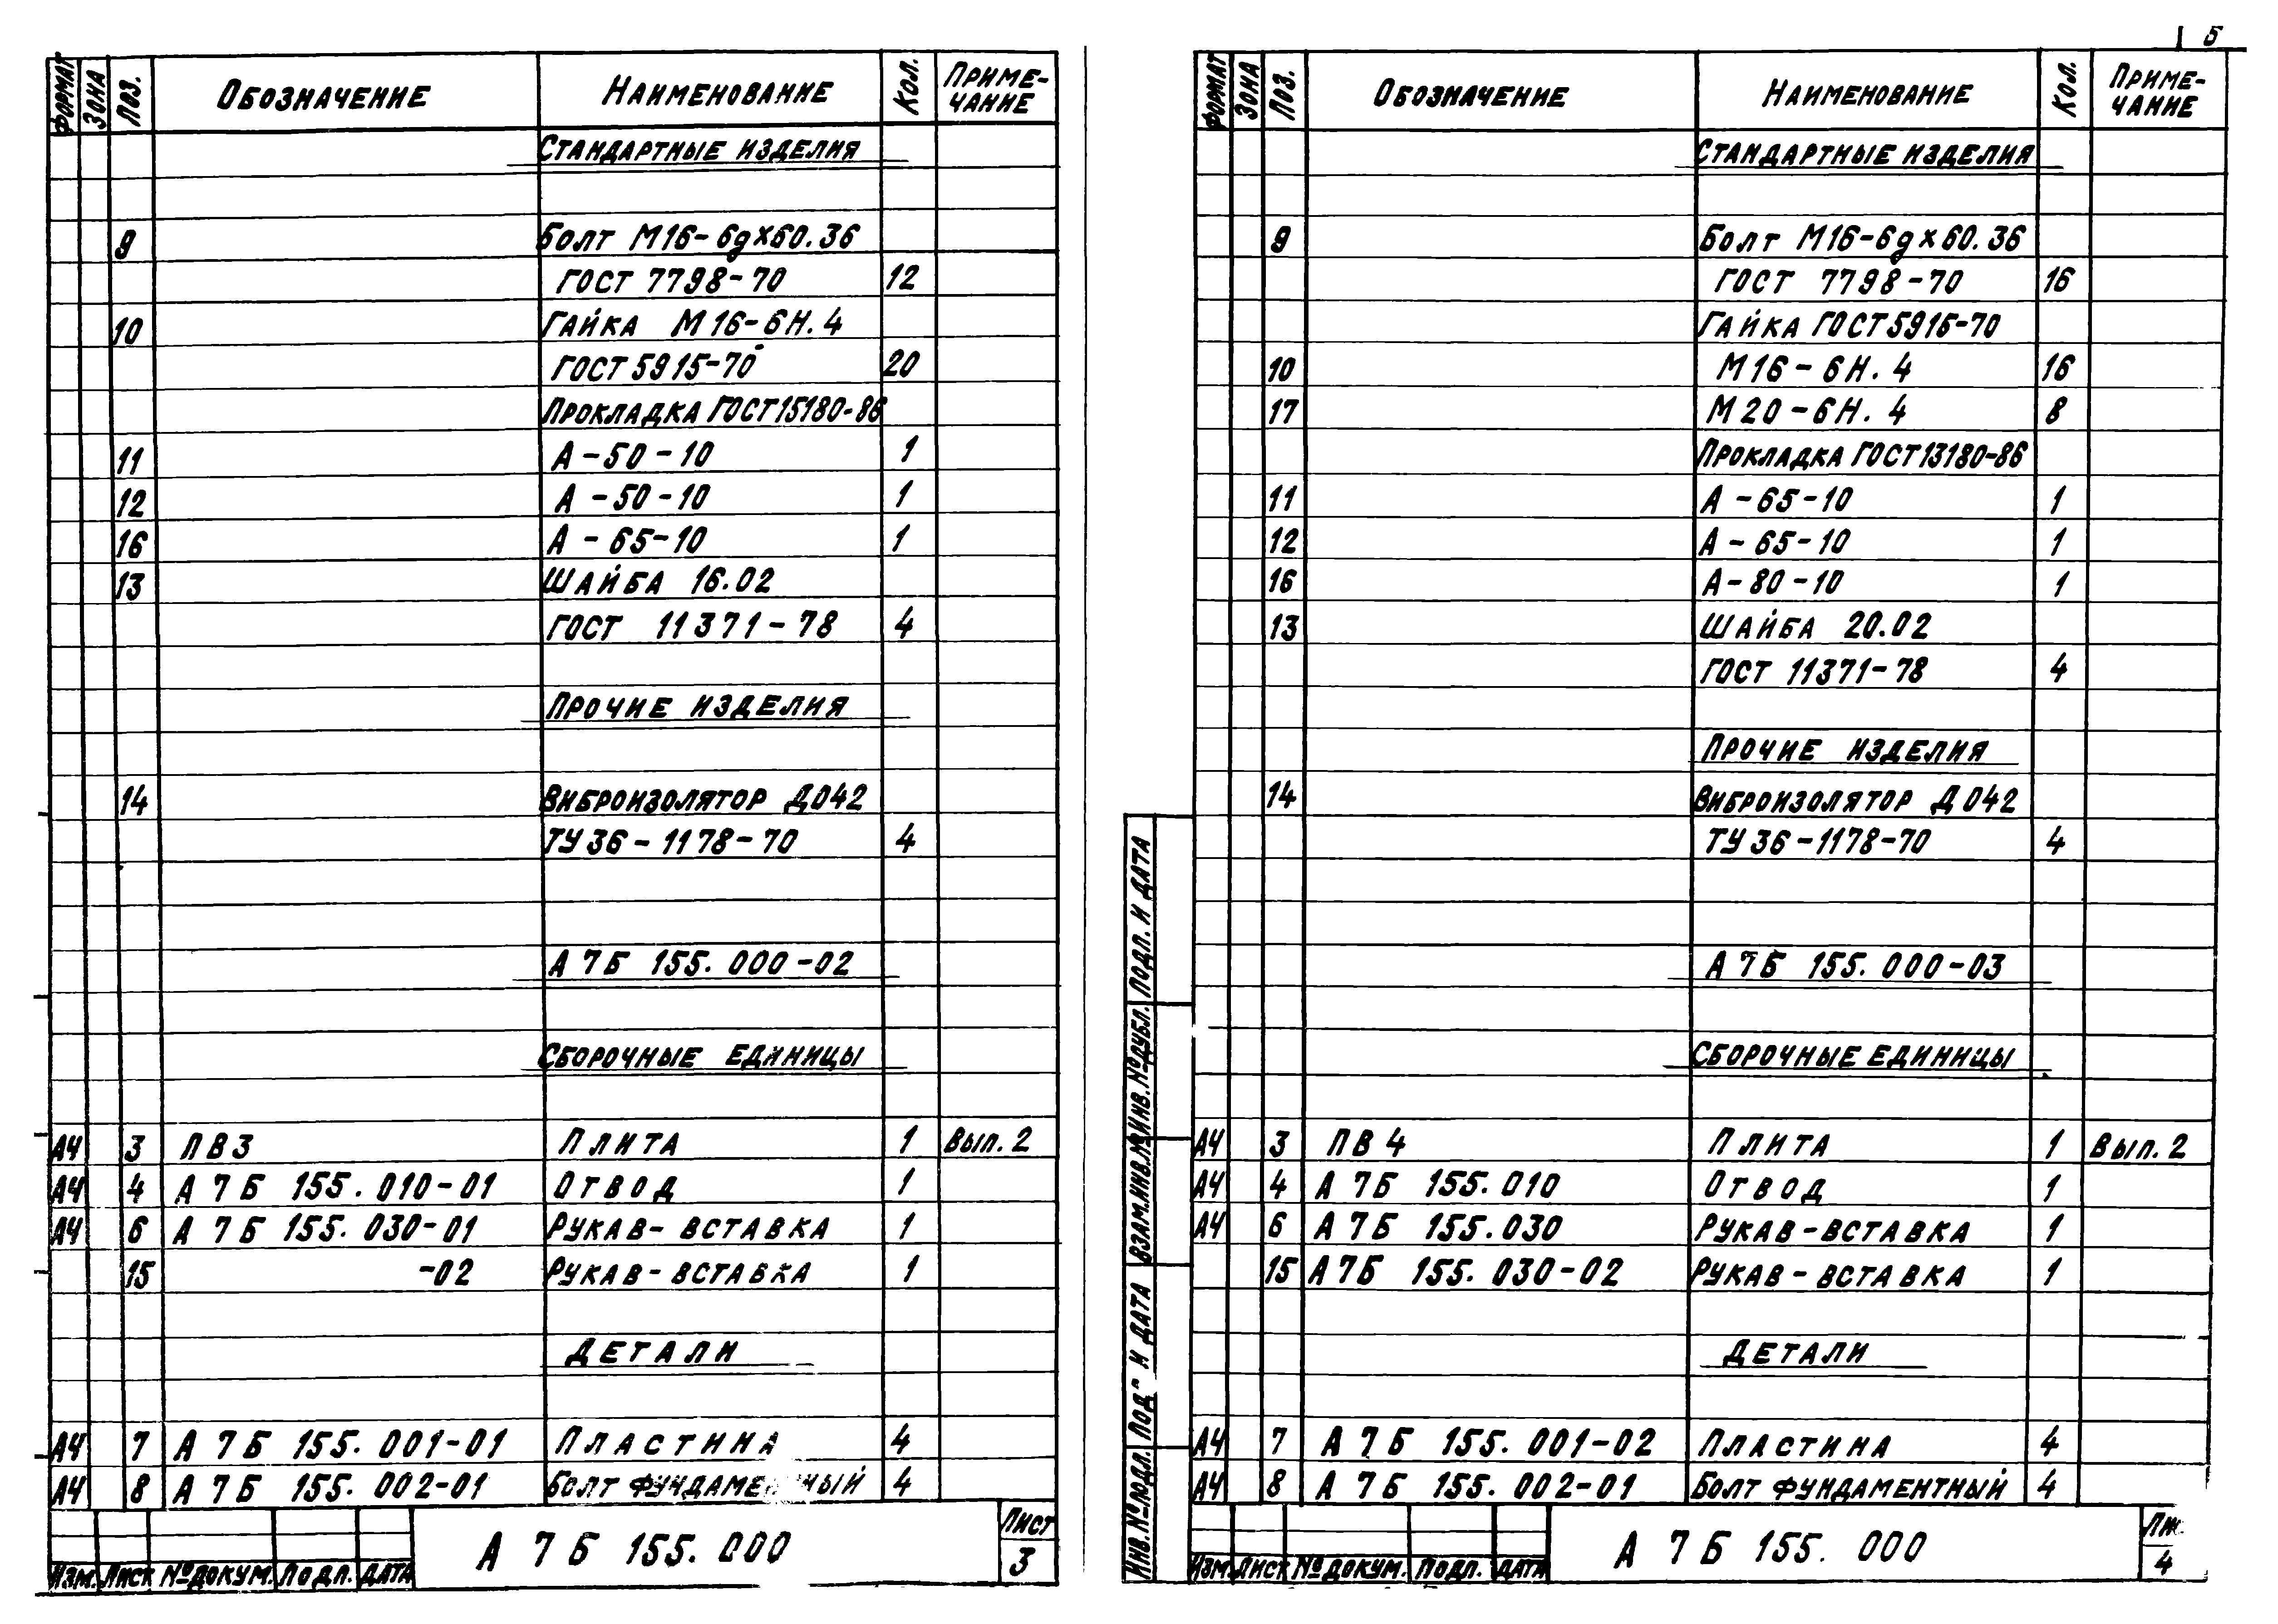 5
ФОРМАТ ЗОНА ПОЗ. ОБОЗНАЧЕНИЕ НАИМЕНОВАНИЕ КОЛ. ПРИМЕ-
ЧАНИЕ
СТАНДАРТНЫЕ ИЗДЕЛИЯ
9 БОЛТ М16-6gх60.36
ГОСТ 7798-70 12
10 ГАЙКА М16-6Н.4
ГОСТ 5915-70 20
ПРОКЛАДКА ГОСТ 15180-86
11 А-50-10 1
12 А-50-10 1
16 А-65-10 1
13 ШАЙБА 16.02
ГОСТ 11371-78 4
ПРОЧИЕ ИЗДЕЛИЯ
14 ВИБРОИЗОЛЯТОР Д042
ТУ 36-1178-70 4
А 7Б 155.000-02
СБОРОЧНЫЕ ЕДИНИЦЫ
А4 3 ПВ3 ПЛИТА 1 ВЫП. 2
А4 4 А 7Б 155.010-01 ОТВОД 1
А4 6 А 7Б 155.030-01 РУКАВ-ВСТАВКА 1
15 -02 РУКАВ-ВСТАВКА 1
ДЕТАЛИ
А4 7 А 7Б 155.001-01 ПЛАСТИНА 4
А4 8 А 7Б 155.002-01 БОЛТ ФУНДАМЕНТНЫЙ 4
ИЗМ. ЛИСТ № ДОКУМ. ПОДП. ДАТА
А 7Б 155.000
ЛИСТ
3
ФОРМАТ ЗОНА ПОЗ. ОБОЗНАЧЕНИЕ НАИМЕНОВАНИЕ КОЛ. ПРИМЕ-
ЧАНИЕ
СТАНДАРТНЫЕ ИЗДЕЛИЯ
9 БОЛТ М16-6gх60.36
ГОСТ 7798-70 16
ГАЙКА ГОСТ 5915-70
10 М16-6Н.4 16
17 М20-6Н.4 8
ПРОКЛАДКА ГОСТ 13180-86
11 А-65-10 1
12 А-65-10 1
16 А-80-10 1
13 ШАЙБА 20.02
ГОСТ 11371-78 4
ПРОЧИЕ ИЗДЕЛИЯ
14 ВИБРОИЗОЛЯТОР Д042
ТУ 36-1178-70 4
А 7Б 155.000-03
СБОРОЧНЫЕ ЕДИНИЦЫ
А4 3 ПВ 4 ПЛИТА 1 ВЫП. 2
А4 4 А 7Б 155.010 ОТВОД 1
А4 6 А 7Б 155.030 РУКАВ-ВСТАВКА 1
15 А7Б 155.030-02 РУКАВ-ВСТАВКА 1
ДЕТАЛИ
А4 7 А 7Б 155.001-02 ПЛАСТИНА 4
А4 8 А 7Б 155.002-01 БОЛТ ФУНДАМЕНТНЫЙ 4
ИНВ. № ПОДЛ. ПОДП. И ДАТА ВЗАМ. ИНВ. № ИНВ. № ДУБЛ. ПОДП. И ДАТА
ИЗМ. ЛИСТ № ДОКУМ. ПОДП. ДАТА
А 7Б 155.000
4